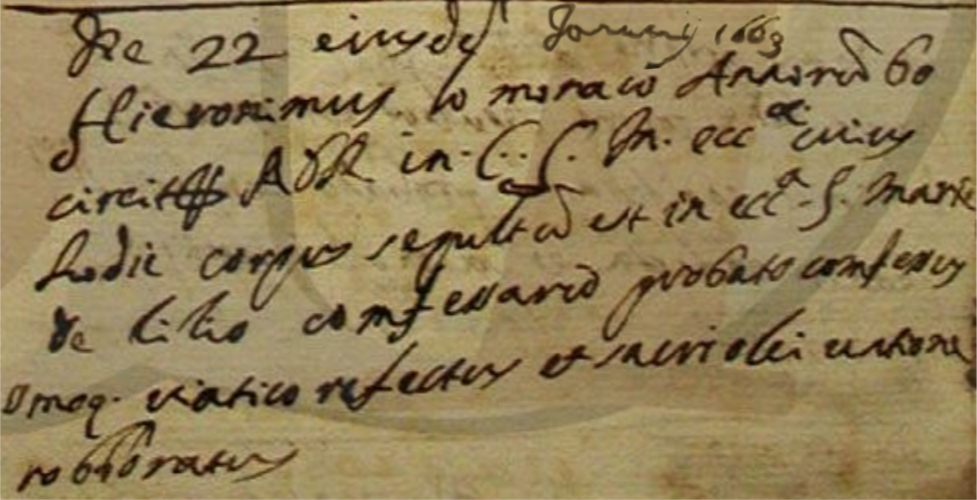 Die 22 eiusdē Januarij 1663
Hieronimus lo monaco Annorū 60
circit Abst in C. S. M. ecc ae cuius
hodie corpus sepultū est in ecc a S. Marie
de lilio comfessariō probato comfessus
viatico refectus et sacri olei untione
roboratus